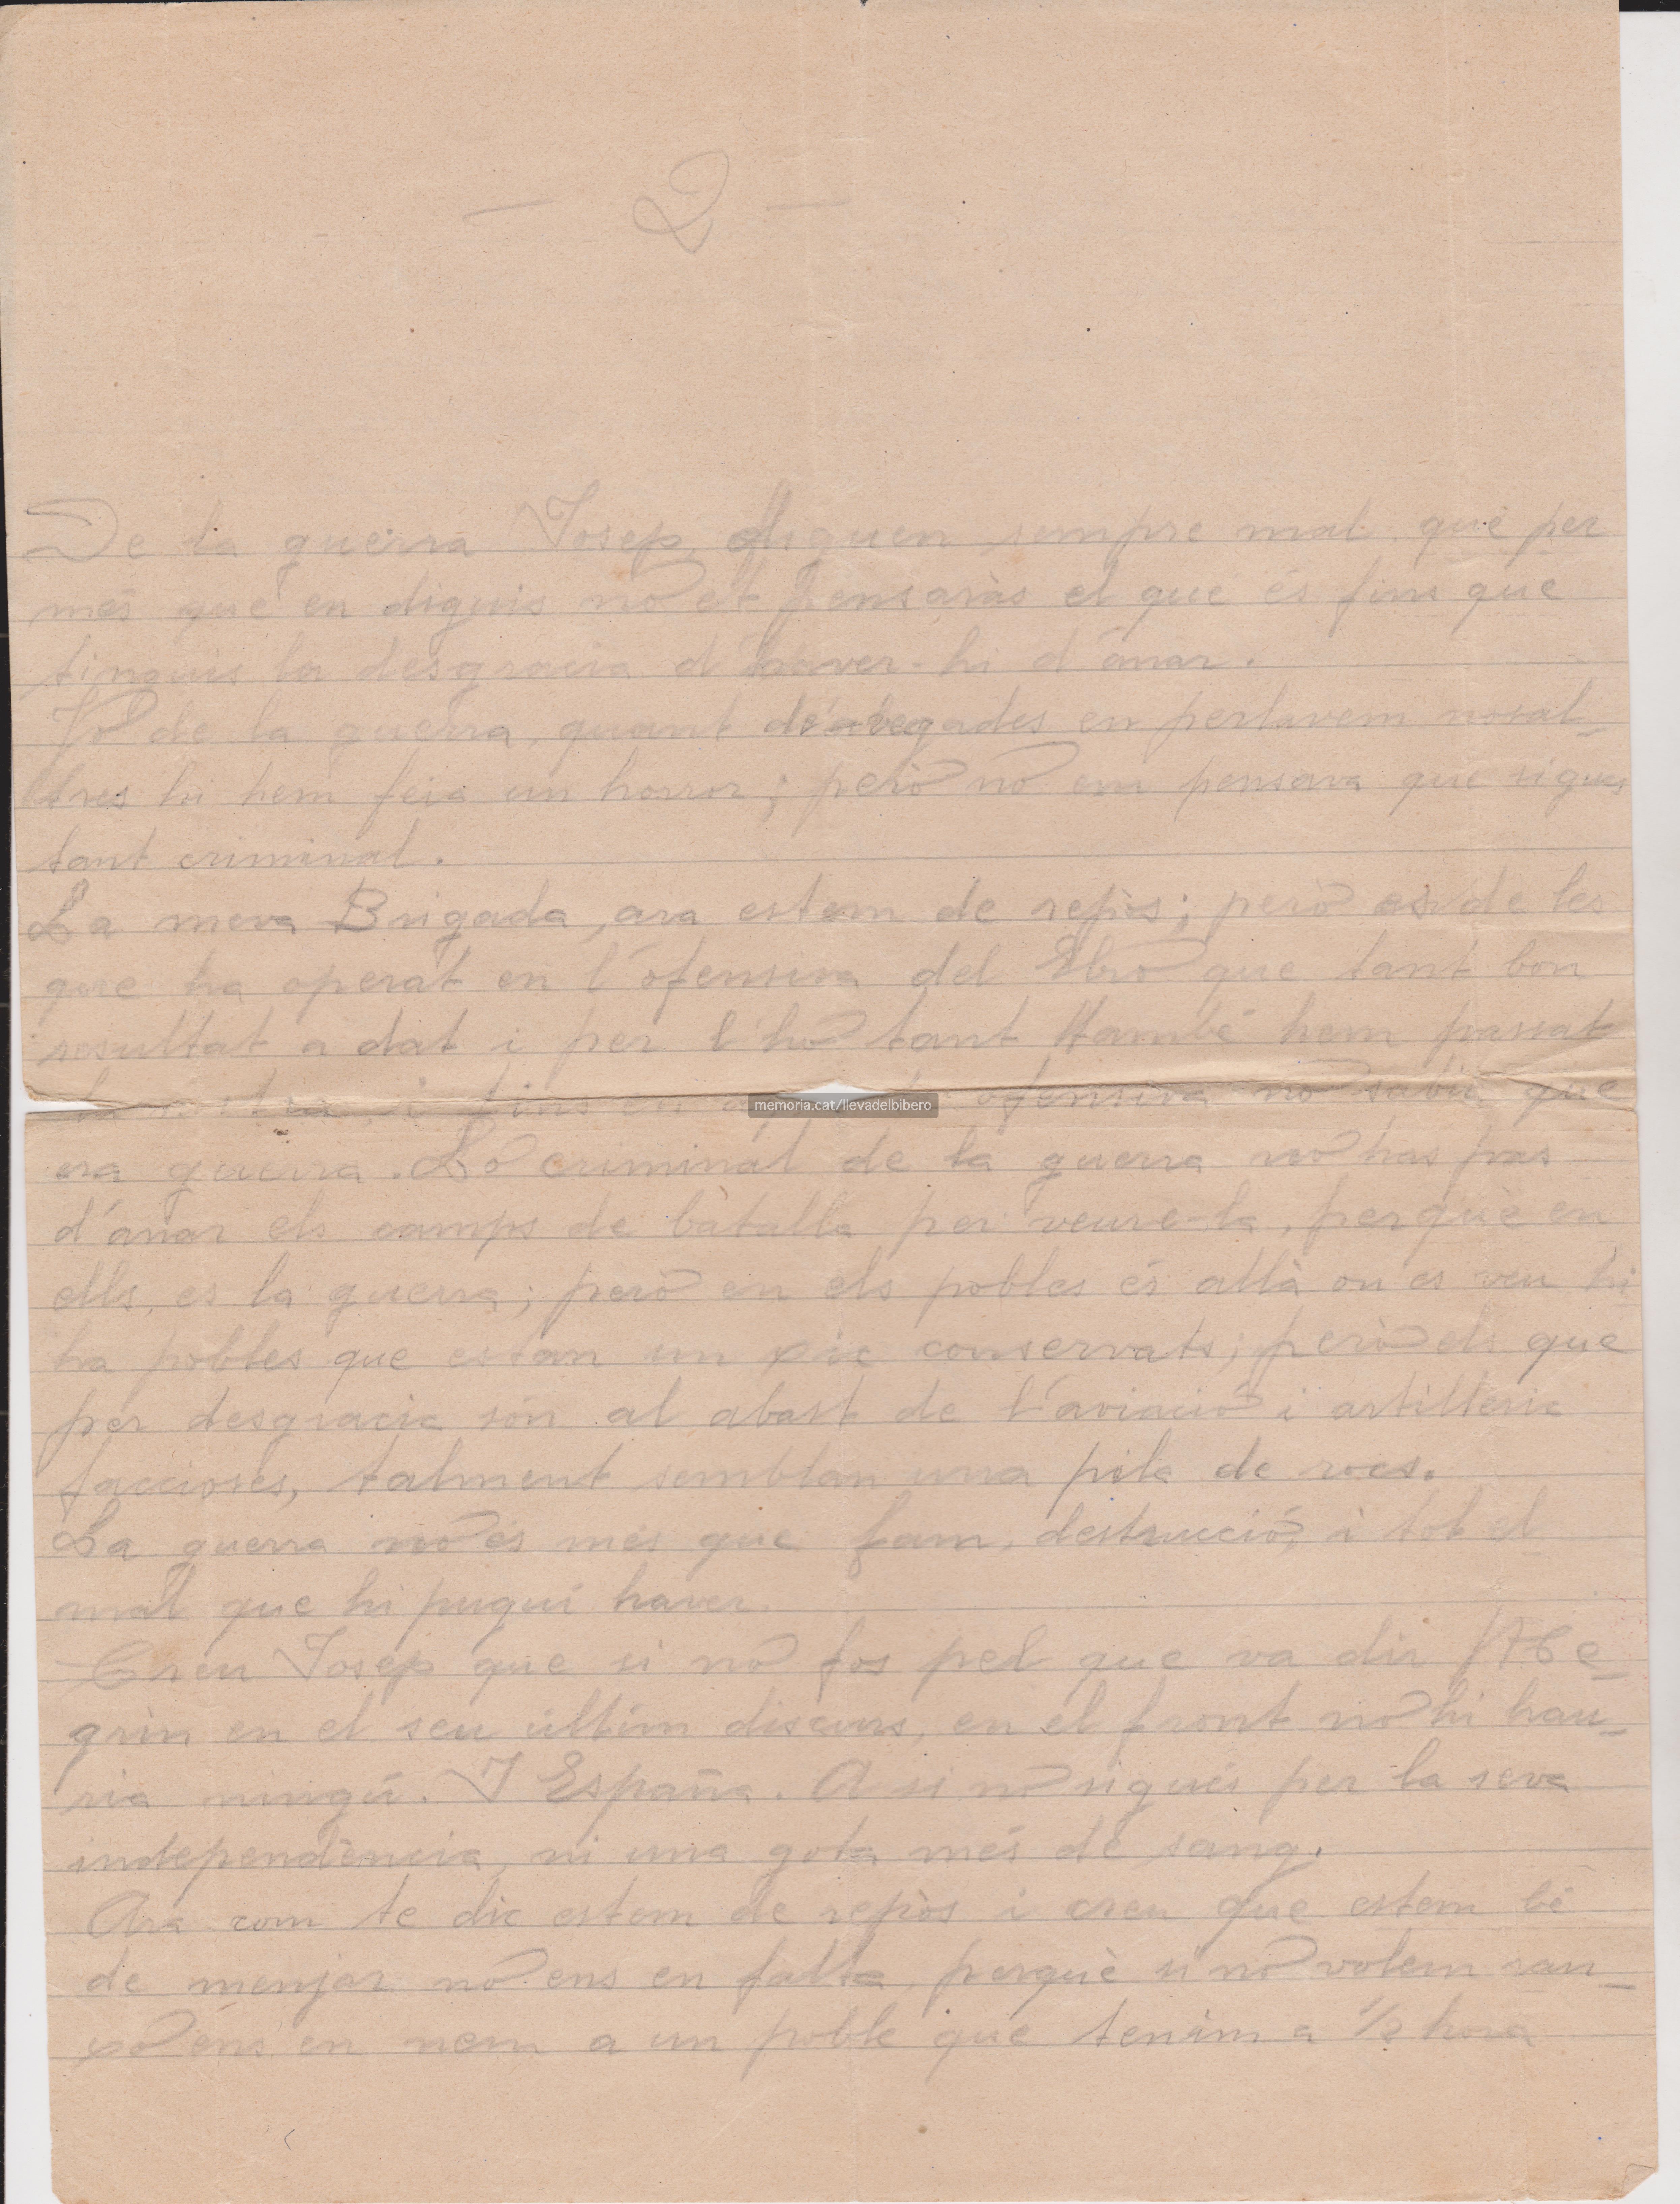 — 2 —
De la guerra Josep, diguen sempre mal que per
més que en diguis no et pensaràs el que és fins que
tinguis la desgracia d'haver-hi d'anar.
Jo de la guerra, quant de'abegades en perlavem nosal-
tres hi hem feia un horror; però no em pensava que sigues
tant criminal.
La meva Brigada, ara estem de repòs; però es de les
que ha operat en l'ofensiva del Ebro que tant bon
resultat a dat i per l'ho tant també hem passat
la nostra, i fins en ofensiva no sabia que
era guerra. Lo criminal de la guerra no has pas
d'anar els camps de batalla per veure-la, perquè en
ells, es la guerra; però en els pobles és allà on es veu hi
ha pobles que estan un xic conservats; però els que
per desgracia són al abast de l'aviació i artilleria
faccioses, talment semblan una pila de rocs.
La guerra no és més que fam, destrucció, i tot el
mal que hi pugui haver.
Creu Josep que si no fos pel que va dir Ne-
grin en el seu últim discurs, en el front no hi hau-
ria ningú. I España. A si no sigués per la seva
independència, ni una gota més de sang.
Ara com te dic estem de repòs i creu que estem bé
de menjar no ens en falta, perquè si no volem ran-
xo ens en nem a un poble que tenim a 1/2 hora
memoria.cat/llevadelbibero